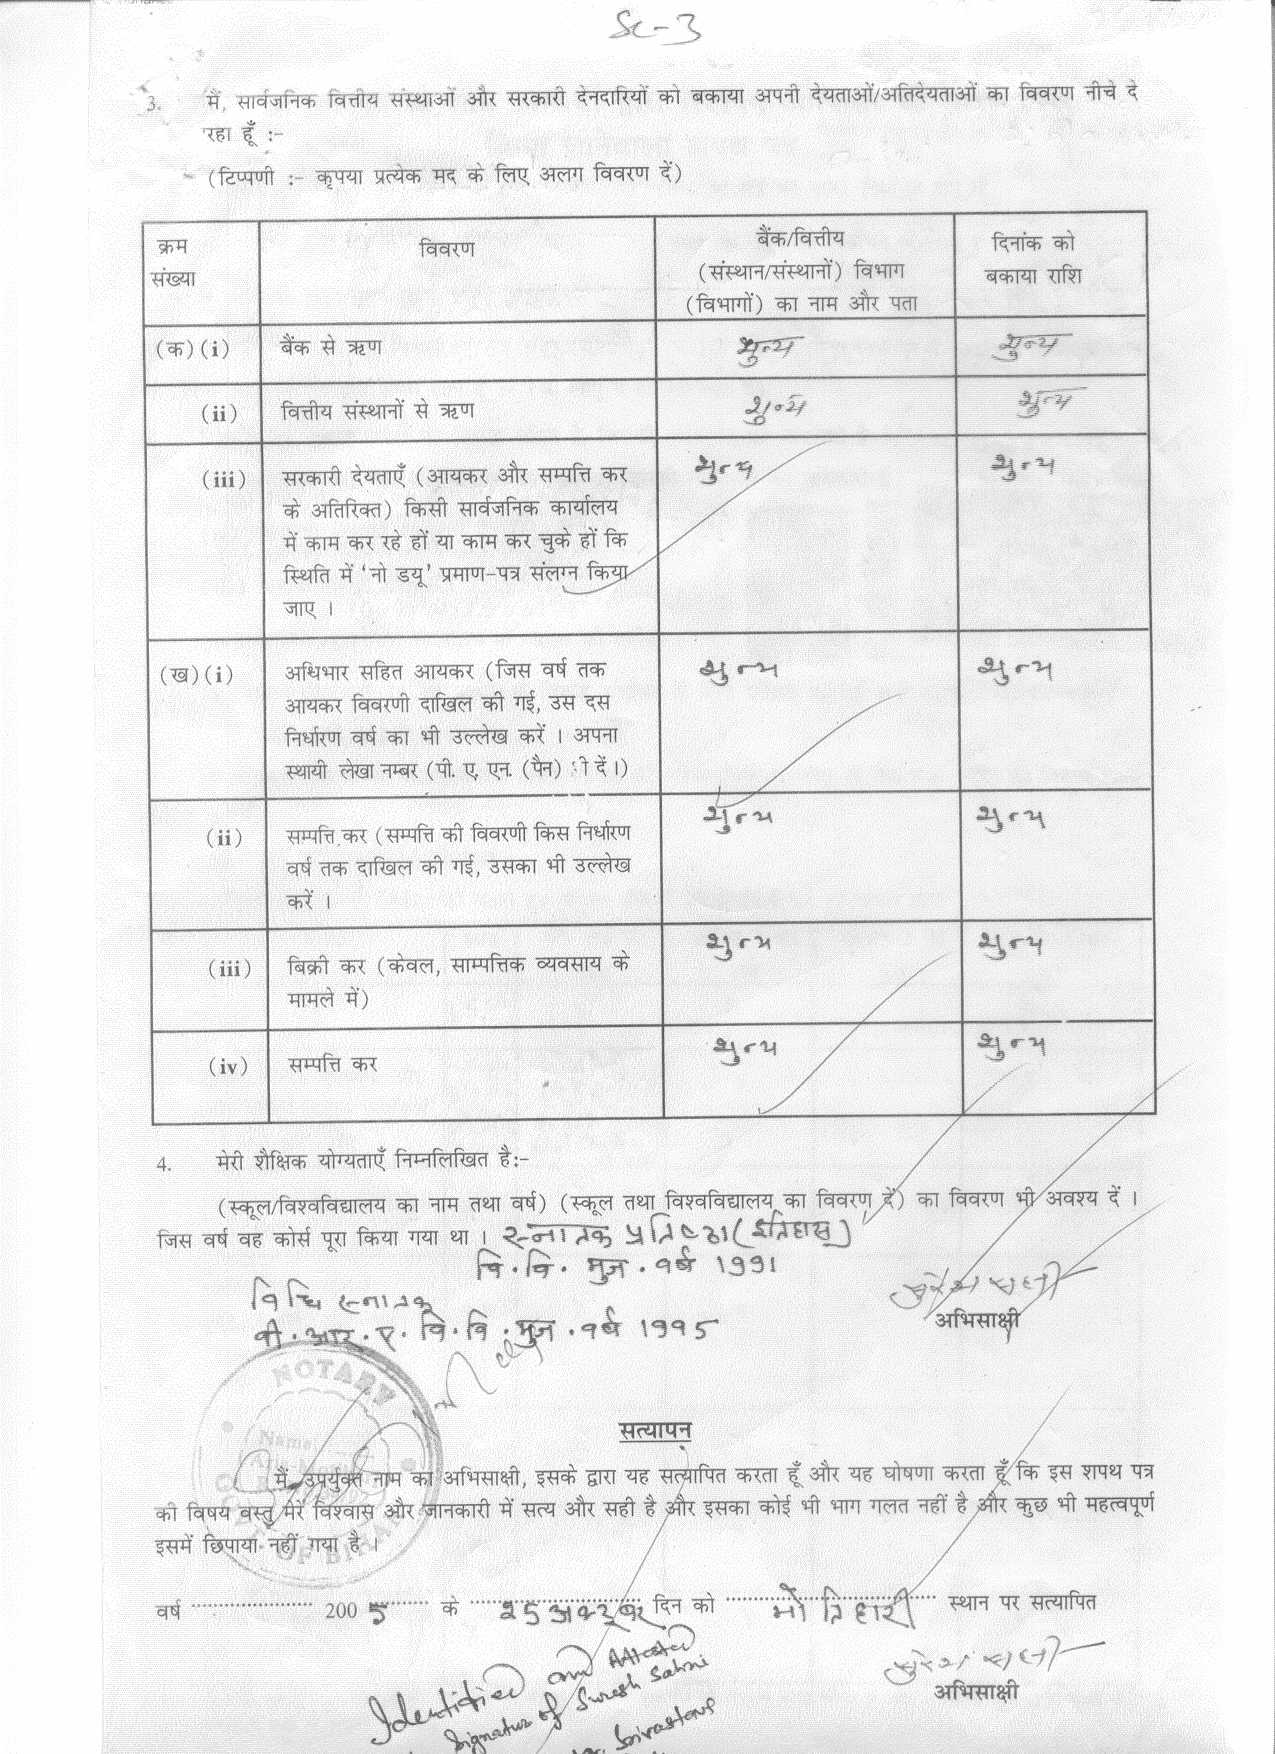 Sc-3
3. मैं, सार्वजनिक वित्तीय संस्थाओं और सरकारी देनदारियों को बकाया अपनी देयताओं/अतिदेयताओं का विवरण नीचे दे
रहा हूँ :-
(टिप्पणी :- कृपया प्रत्येक मद के लिए अलग विवरण दें)
क्रम संख्या | विवरण | बैंक/वित्तीय (संस्थान/संस्थानों) विभाग (विभागों) का नाम और पता | दिनांक को बकाया राशि
(क)(i) बैंक से ऋण शुन्य शुन्य
(ii) वित्तीय संस्थानों से ऋण शुन्य शुन्य
(iii) सरकारी देयताएँ (आयकर और सम्पत्ति कर शुन्य शुन्य
के अतिरिक्त) किसी सार्वजनिक कार्यालय
में काम कर रहे हों या काम कर चुके हों कि
स्थिति में 'नो डयू' प्रमाण-पत्र संलग्न किया
जाए ।
(ख)(i) अधिभार सहित आयकर (जिस वर्ष तक शुन्य शुन्य
आयकर विवरणी दाखिल की गई, उस दस
निर्धारण वर्ष का भी उल्लेख करें । अपना
स्थायी लेखा नम्बर (पी. ए. एन. (पैन) भी दें।)
(ii) सम्पत्ति कर (सम्पत्ति की विवरणी किस निर्धारण शुन्य शुन्य
वर्ष तक दाखिल की गई, उसका भी उल्लेख
करें ।
(iii) बिक्री कर (केवल, साम्पत्तिक व्यवसाय के शुन्य शुन्य
मामले में)
(iv) सम्पत्ति कर शुन्य शुन्य
4. मेरी शैक्षिक योग्यताएँ निम्नलिखित है:-
(स्कूल/विश्वविद्यालय का नाम तथा वर्ष) (स्कूल तथा विश्वविद्यालय का विवरण दें) का विवरण भी अवश्य दें ।
जिस वर्ष वह कोर्स पूरा किया गया था । स्नातक प्रतिष्ठा (इतिहास)
वि. वि. मुज. वर्ष 1991
विधि स्नातक
बी. आर. ए. वि. वि. मुज. वर्ष 1995
सुरेश सहनी
अभिसाक्षी
NOTARY
Name
OF BIHAR
सत्यापन
मैं, उपर्युक्त नाम का अभिसाक्षी, इसके द्वारा यह सत्यापित करता हूँ और यह घोषणा करता हूँ कि इस शपथ पत्र
की विषय वस्तु मेरे विश्वास और जानकारी में सत्य और सही है और इसका कोई भी भाग गलत नहीं है और कुछ भी महत्वपूर्ण
इसमें छिपाया नहीं गया है ।
वर्ष ........ 2005 ........ के 25 अक्टूबर दिन को मोतिहारी स्थान पर सत्यापित
सुरेश सहनी
अभिसाक्षी
Identified and Attested
Signature of Suresh Sahni
Srivastava